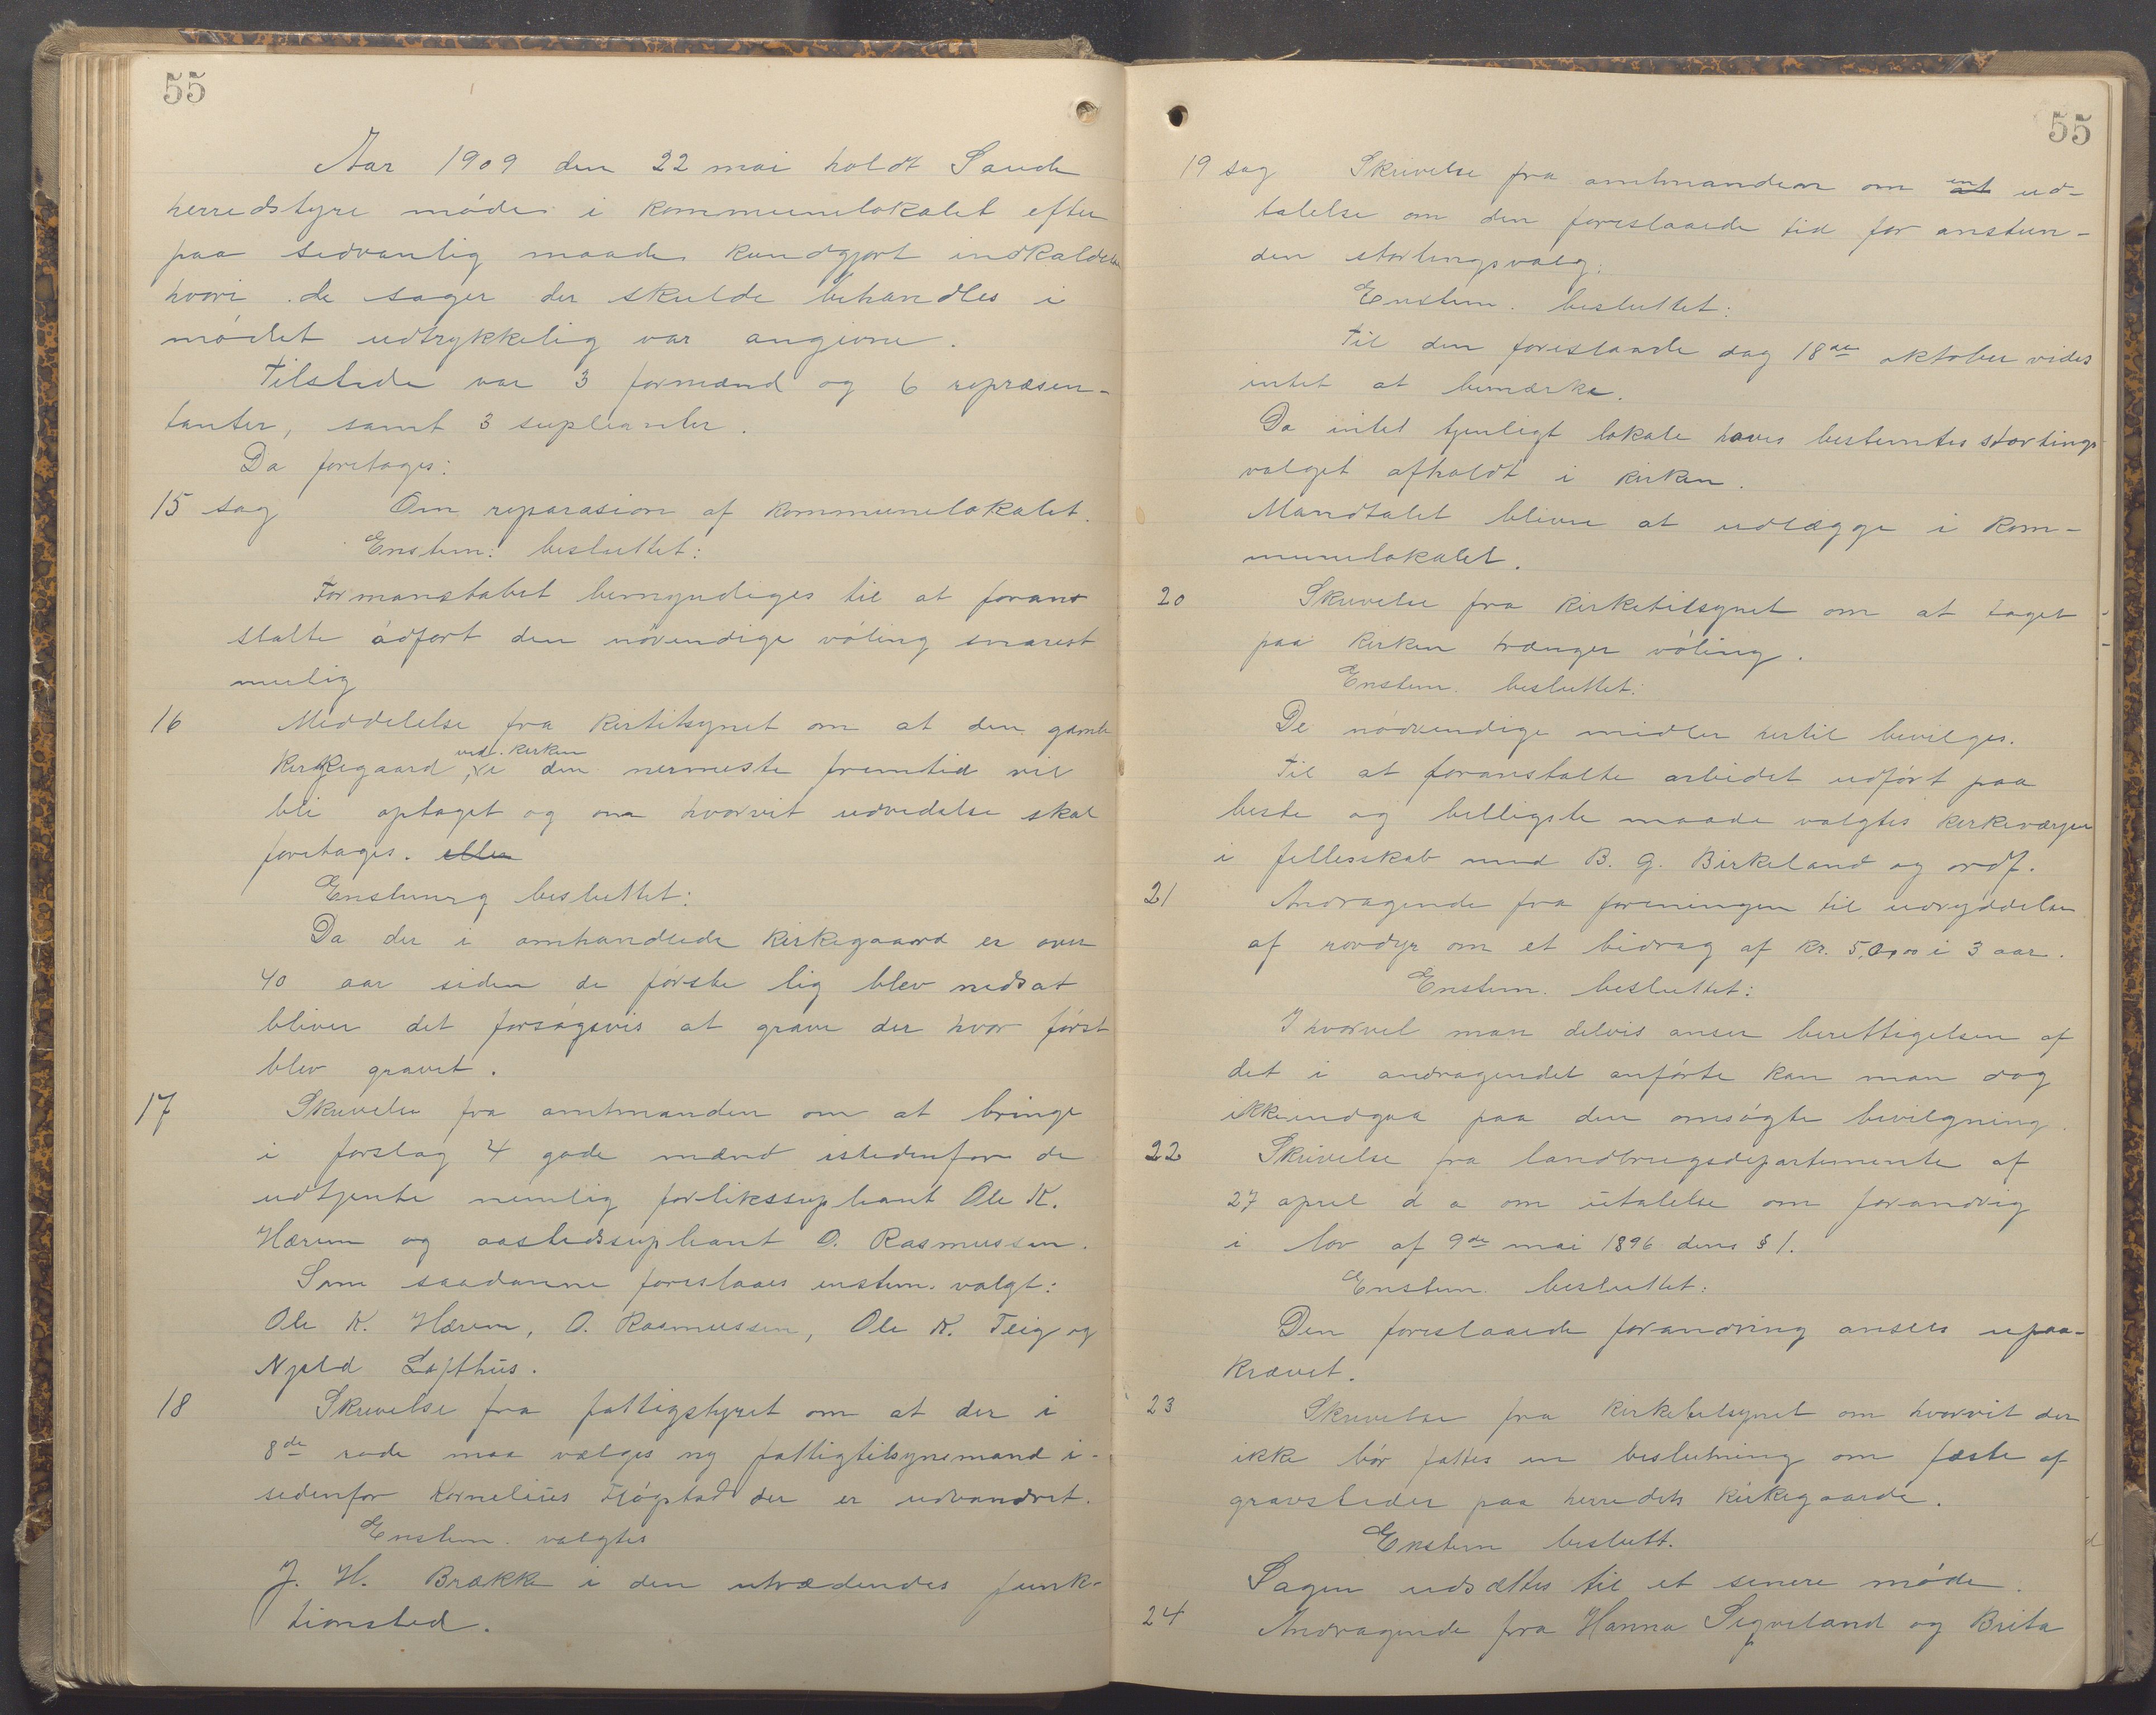 55
Aar 1909 den 22 mai holdt Saude
herredstyre møde i kommunelokalet efter
paa sedvanlig maade kundgjort indkaldelse
hvori de sager der skulde behandles i
mødet udtrykkelig var angivne.
Tilstede var 3 formænd og 6 repræsen-
tanter, samt 3 supleanter.
Da foretages:
15 sag Om reparasion af kommunelokalet.
Enstem: besluttet:
Formanskabet bemyndiges til at foran
stalte udført den nøvendige vøling snarest
mulig
16 Meddelelse fra kirtilsynet om at den gamle
kirkegaard, ved kirken i den nermeste fremtid vil
bli optaget og om hvorvit udvidelse skal
foretages. eller
Enstemig besluttet:
Da der i omhandlede kirkegaard er over
40 aar siden de første lig blev nedsat
bliver det forsøgsvis at grave der hvor først
blev gravet.
17 Skrivelse fra amtmanden om at bringe
i forslag 4 gode mænd istedenfor de
udtjente nemlig forlikssupleant Ole K.
Hærem og aastedssupleant O. Rasmussen.
Som saadanne foreslaaes enstem. valgt:
Ole K. Hærem, O. Rasmussen, Ole K. Teig og
Njeld Lofthus.
18 Skrivelse fra fattigstyret om at der i
8de rode maa vælges ny fattigtilsynsmand i-
sedenfor Kornelius Fjøgstad der er udvandret.
Enstem. valgtes
J. H. Brække i den utrædendes funk-
tionsted.
55
19 sag Skrivelse fra amtmanden om at en ud-
talelse om den foreslaaede tid for anstun-
den stortingsvalg:
Enstem. besluttet:
Til den foreslaade dag 18de oktober vides
intet at bemærke.
Da intet tjenligt lokale haves bestemtes stortings
valget afholdt i kirken.
Mandtalet bliver at udlægge i kom-
munelokalet.
20 Skrivelse fra kirketilsynet om at taget
paa kirken trænger vøling.
Enstem. besluttet:
De nødvendige midler hertil bevilges.
Til at foranstalte arbeidet udført paa
beste og billigste maade valgtes kirkeværgen
i fellesskab med B. G. Birkeland og ordf.
21 Andragende fra foreningen til udryddelse
af rovdyr om et bidrag af kr. 5,00 i 3 aar.
Enstem. besluttet:
Ihvorvel man delvis anser berettigelsen af
det i andragendet anførte kan man dog
ikke indgaa paa den omsøgte bevilgning.
22 Skrivelse fra landbrugsdepartemente af
27 april d a om utalelse om forandrig
i lov af 9de mai 1896 dens § 1.
Enstem. besluttet:
Den foreslaaede forandring ansees upaa-
krævet.
23 Skrivelse fra kirketilsynet om hvorvit der
ikke bør fattes en beslutning om fæste af
gravsteder paa herredets kirkegaarde.
Enstem beslutt.
Sagen udsættes til et senere møde.
24 Andragende fra Hanna Sigveland og Brita